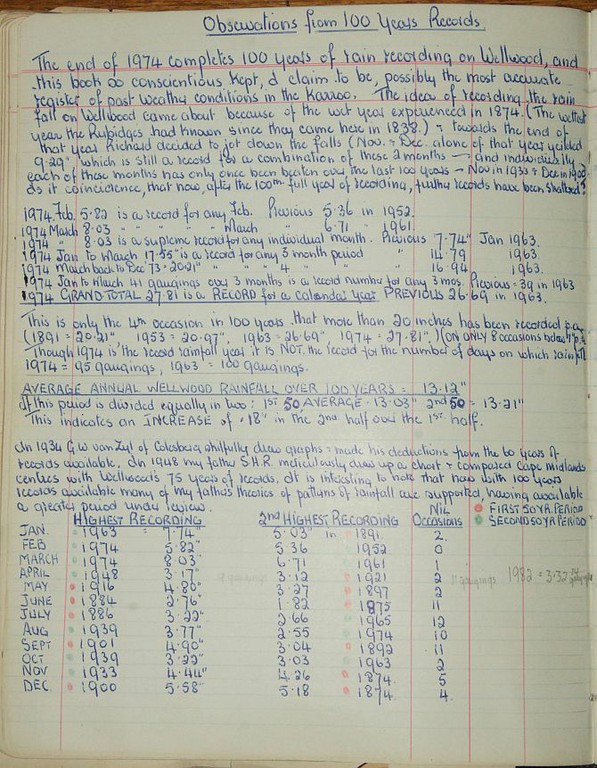 Observations from 100 Years Records
The end of 1974 completes 100 years of rain recording on Wellwood, and
this book so conscientious kept, I claim to be, possibly the most accurate
register of past weather conditions in the Karroo. The idea of recording the rain
fall on Wellwood came about because of the wet year experienced in 1874. (The wettest
year the Rubidges had known since they came here in 1838.) & towards the end of
that year Richard decided to jot down the falls (Nov. & Dec. alone of that year yielded
9.29" which is still a record for a combination of these 2 months — and individually
each of these months has only once been beaten over the last 100 years - Nov in 1933 & Dec in 1900
Is it coincidence, that now, after the 100th full year of recording, further records have been shattered?
1974 Feb. 5.82 is a record for any Feb. Previous 5.36 in 1952.
1974 March 8.03 " " " " " March " 6.71 " 1961.
1974 " 8.03 is a supreme record for any individual month. Previous 7.74" Jan 1963.
1974 Jan to March 17.55" is a record for any 3 month period " 14.79 1963
1974 March back to Dec 73 - 20.21" " " " 4 " " " 16.94 1963.
1974 Jan to March 41 gaugings over 3 months is a record number for any 3 mos. Previous = 39 in 1963
1974 GRAND TOTAL 27.81 is a RECORD for a calendar year PREVIOUS 26.69 in 1963.
This is only the 4th occasion in 100 years that more than 20 inches has been recorded p.a
(1891 = 20.21" 1953 = 20.97", 1963 = 26.69", 1974 = 27.81".) (ON ONLY 8 occasions below 7" p.a
Though 1974 is the record rainfall year it is NOT the record for the number of days on which rain fell
1974 = 95 gaugings, 1963 = 100 gaugings.
AVERAGE ANNUAL WELLWOOD RAINFALL OVER 100 YEARS = 13.12"
If this period is divided equally in two; 1st 50 AVERAGE = 13.03" 2nd 50 = 13.21"
This indicates an INCREASE of .18" in the 2nd half over the 1st. half.
In 1934 G.W. van Zyl of Colesberg skilfully drew graphs & made his deductions from the 60 years of
records available. In 1948 my father S.H.R. meticulously drew up a chart & compared Cape midlands
centres with Wellwood's 75 years of records. It is interesting to note that now with 100 years
records available many of my father's theories of patterns of rainfall are supported, having available
a greater period under review.
FIRST 50 YR PERIOD
SECOND 50 YR PERIOD
HIGHEST RECORDING 2nd HIGHEST RECORDING Nil Occasions
JAN. 1963 = 7.74" 5.03" in 1891. 2.
FEB 1974 5.82" 5.36 1952. 0
MARCH 1974 8.03" 6.71 1961 1
APRIL 1948 3.17" 3.12 1921 2 gaugings 1982 = 3.32
MAY 1916 4.80" 3.27 1897 2
JUNE 1884 2.76" 1.82 1875 11
JULY 1886 3.22" 2.66 1965 12
AUG 1939 3.77" 2.55 1974 10
SEPT 1901 4.90" 3.04 1892 11
OCT 1939 3.22" 3.03 1963 2
NOV 1933 4.44" 4.26 1874. 5
DEC. 1900 5.58" 5.18 1874. 4.